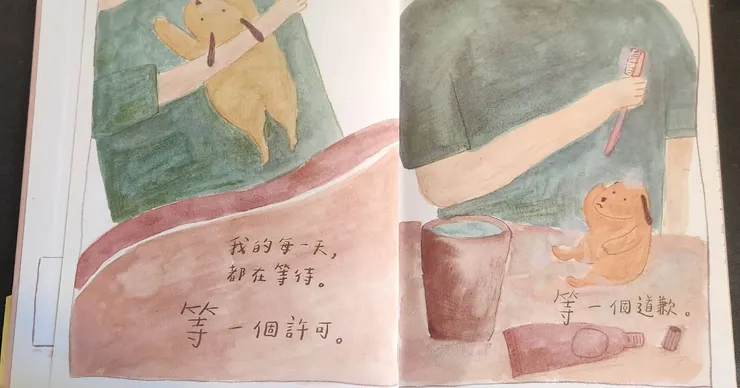 我的每一天,
都在等待。
等一個許可。
等一個道歉。